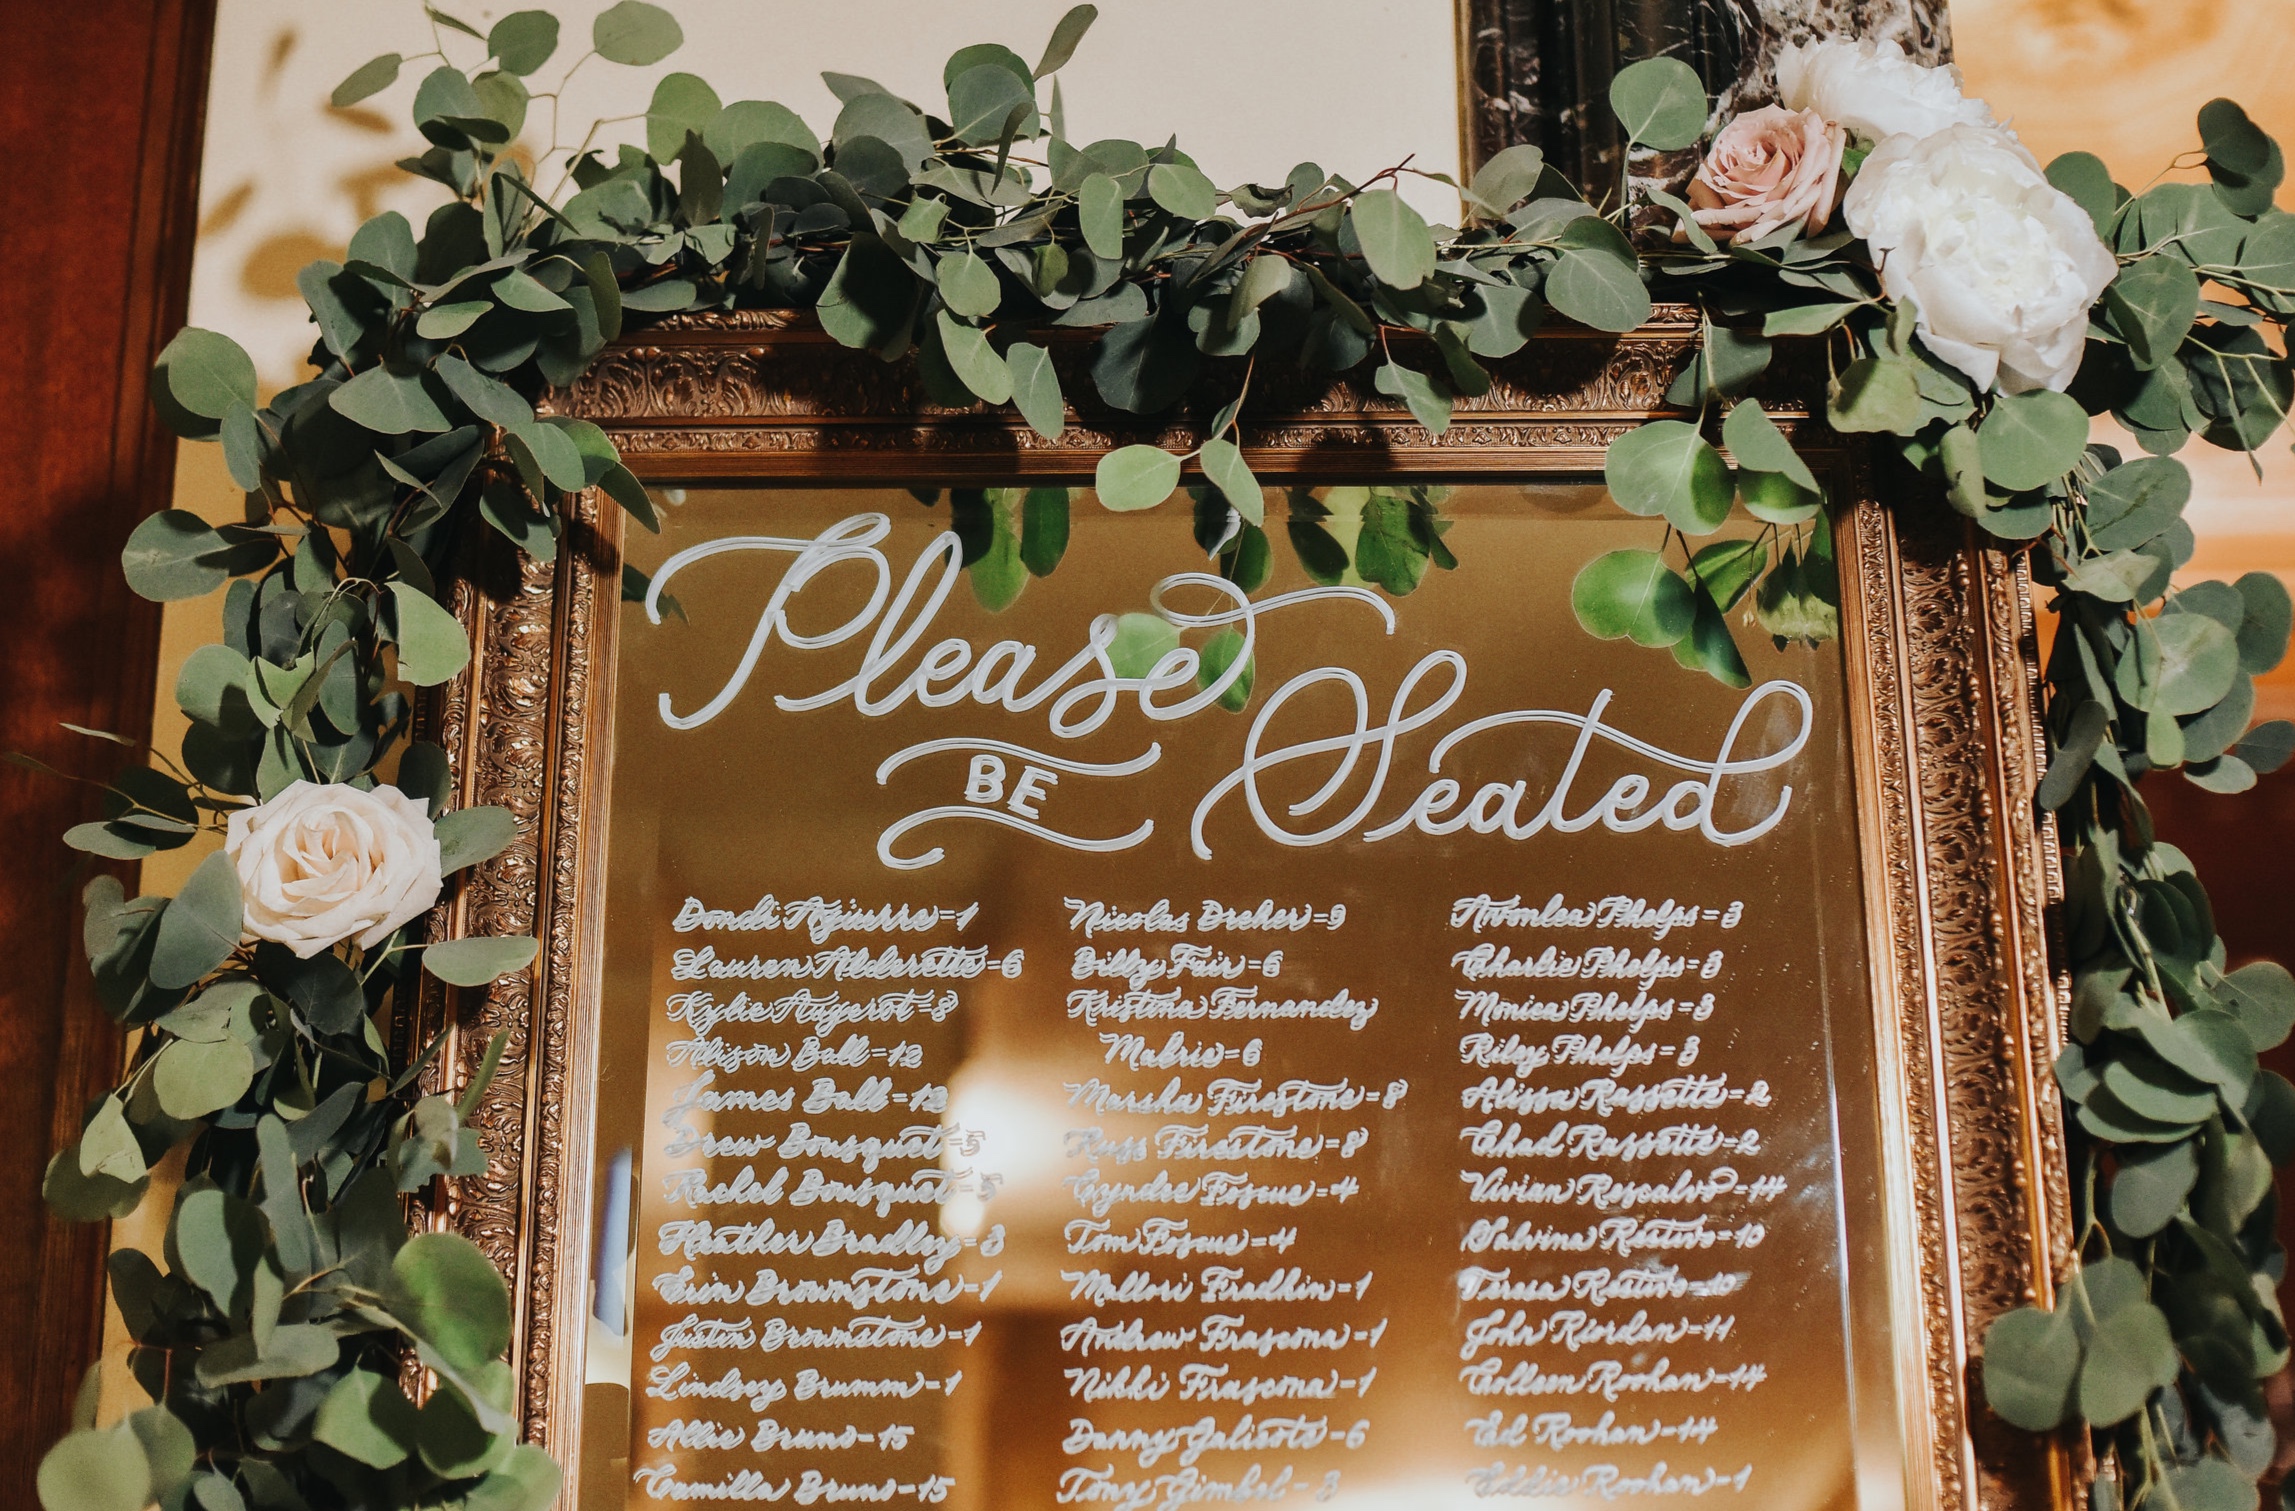 Please
BE
Seated
Dondi Aguirre=1
Lauren Alderette=6
Kylie Augerot=8
Alison Ball=12
James Ball=12
Drew Bousquet=5
Rachel Bousquet=5
Heather Bradley=3
Erin Brownstone=1
Justin Brownstone=1
Lindsey Brumm=1
Allie Bruno=15
Camilla Bruno=15
Nicolas Dreher=9
Billy Fair=6
Kristina Fernandez
Mabrie=6
Marsha Firestone=8
Russ Firestone=8
Cyndee Foscue=4
Tom Foscue=4
Mallori Fradkin=1
Andrew Frascona=1
Nikki Frascona=1
Danny Galicote=6
Tony Gimbel=3
Avonlea Phelps=3
Charlie Phelps=3
Monica Phelps=3
Riley Phelps=3
Alissa Rassette=2
Chad Rassette=2
Vivian Rescalvo=14
Salvina Restivo=10
Teresa Restivo=10
John Riordan=11
Colleen Roohan=14
Ed Roohan=14
Eddie Roohan=1